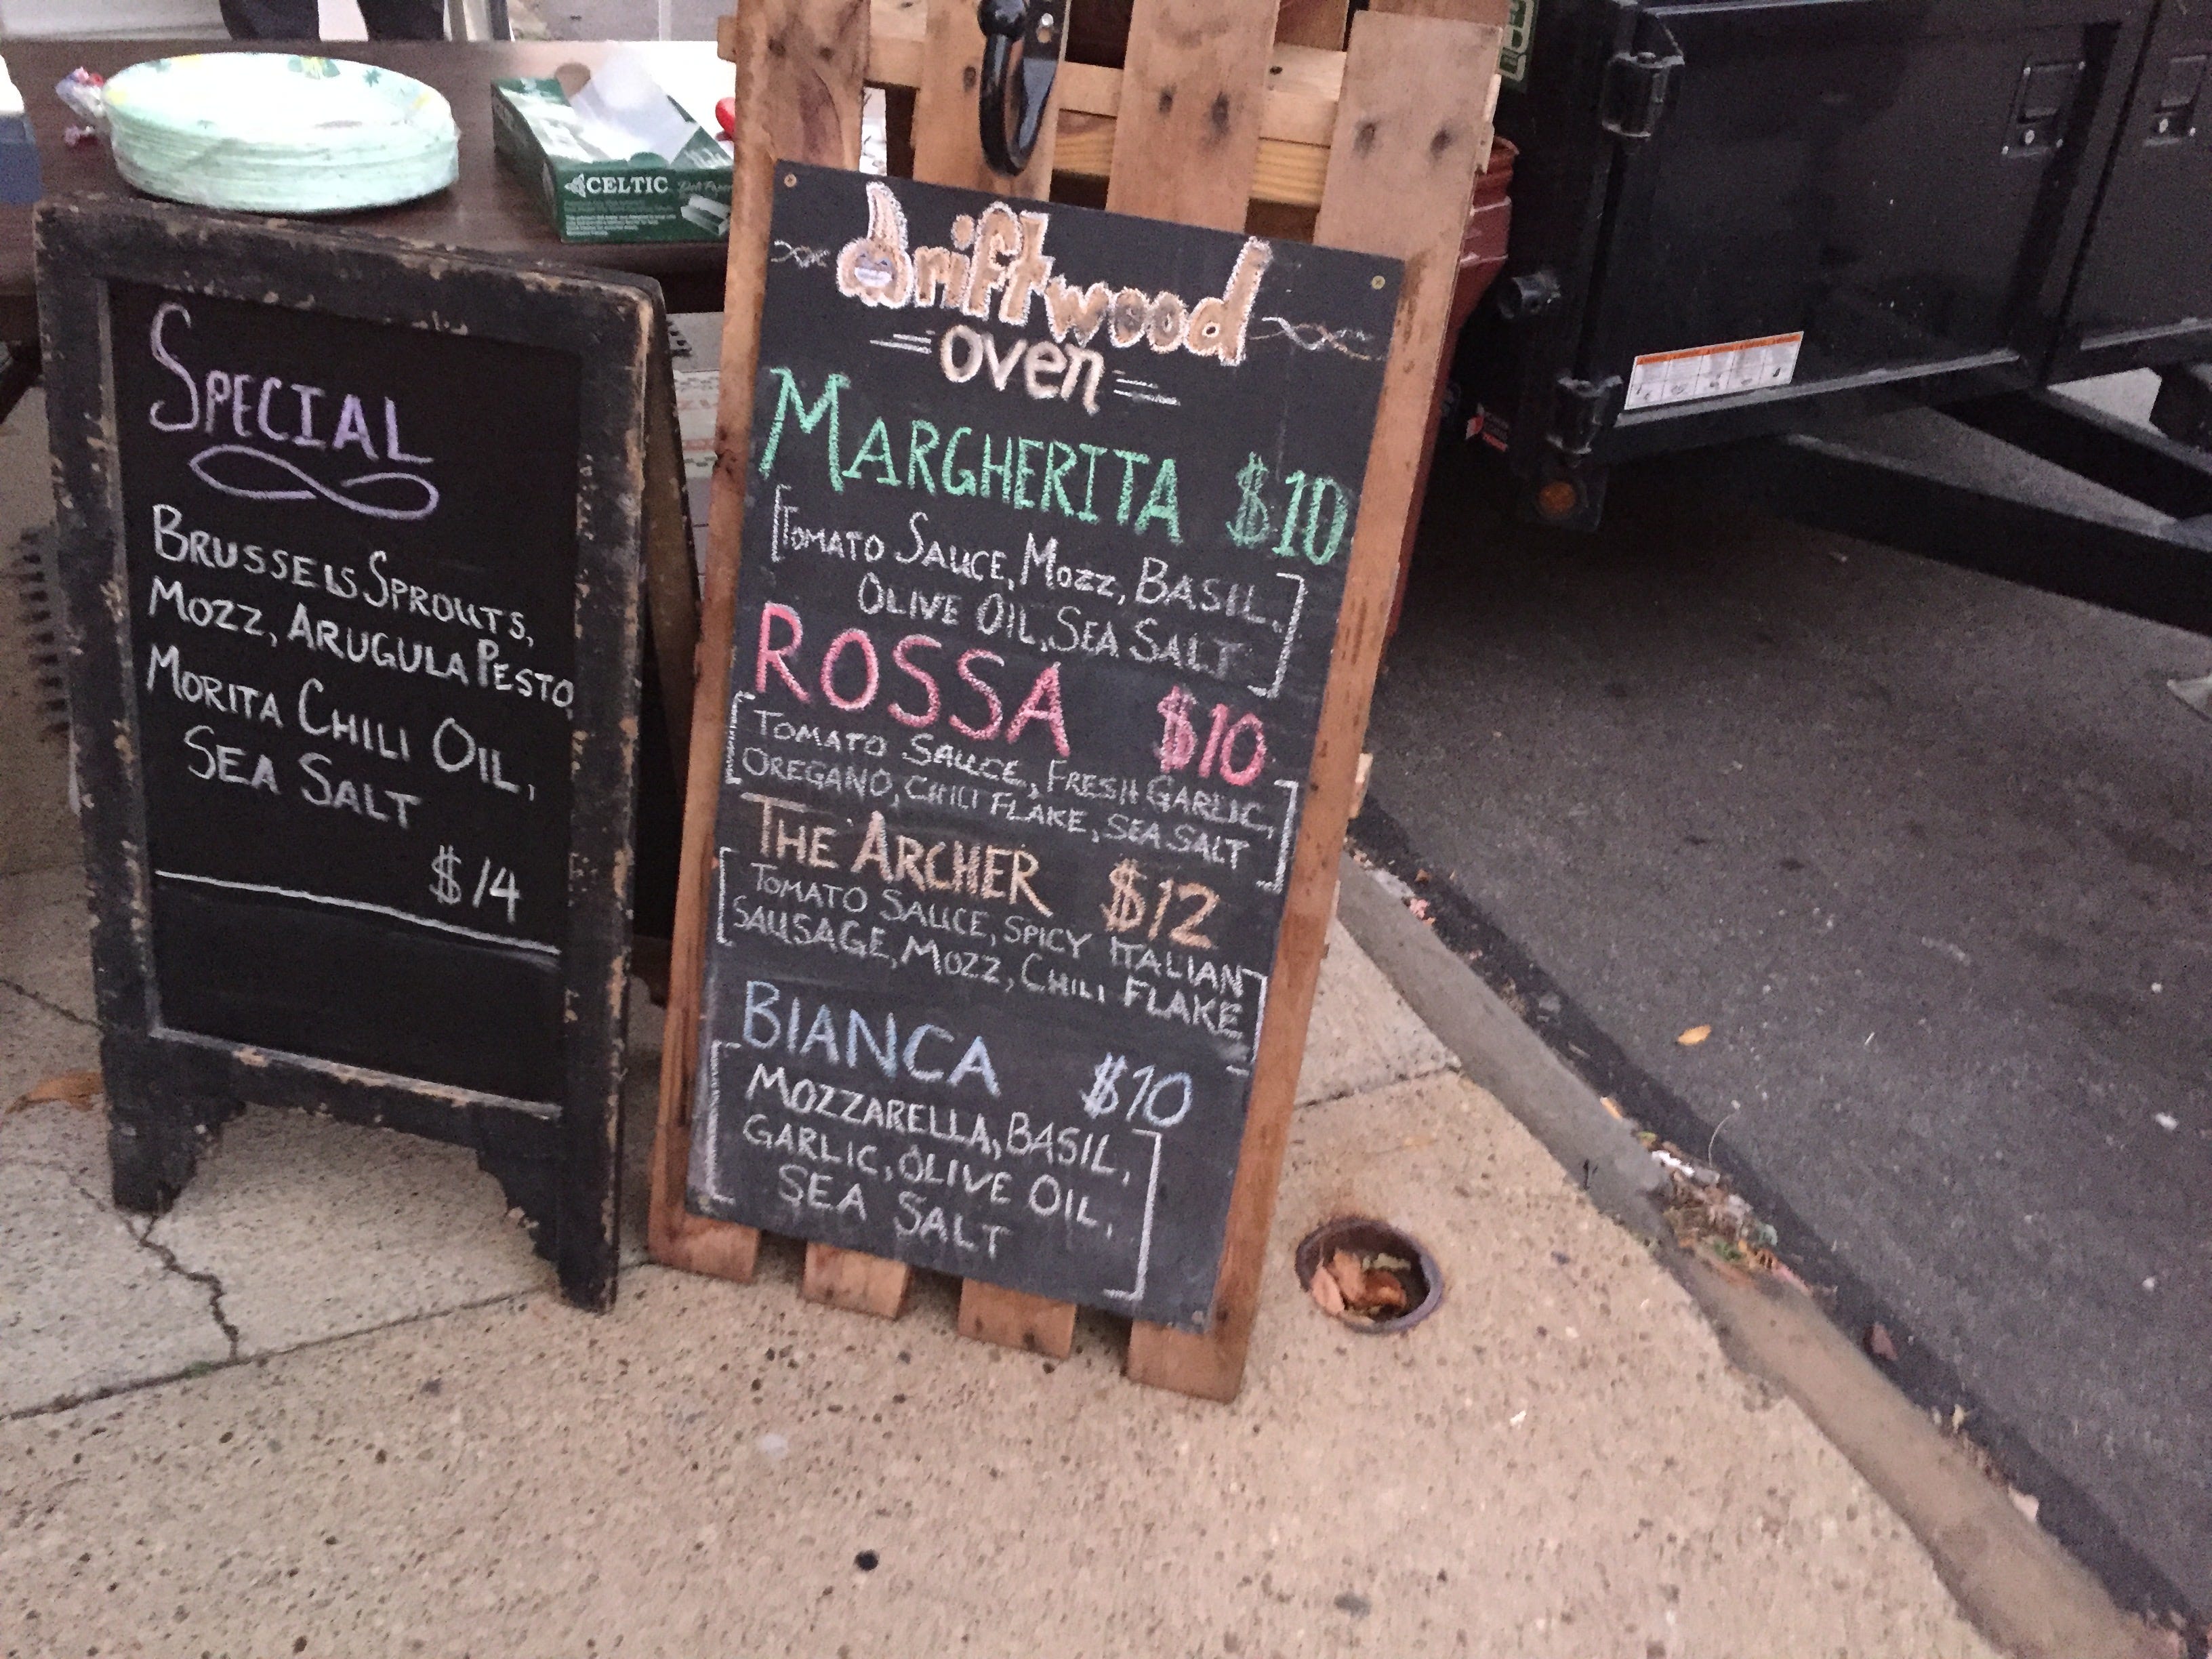 CELTIC
Deli Paper
SPECIAL
BRUSSELS SPROUTS,
MOZZ, ARUGULA PESTO,
MORITA CHILI OIL,
SEA SALT
$14
driftwood
oven
MARGHERITA $10
[TOMATO SAUCE, MOZZ, BASIL,
OLIVE OIL, SEA SALT]
ROSSA $10
[TOMATO SAUCE, FRESH GARLIC,
OREGANO, CHILI FLAKE, SEA SALT]
THE ARCHER $12
[TOMATO SAUCE, SPICY ITALIAN
SAUSAGE, MOZZ, CHILI FLAKE]
BIANCA $10
[MOZZARELLA, BASIL,
GARLIC, OLIVE OIL,
SEA SALT]